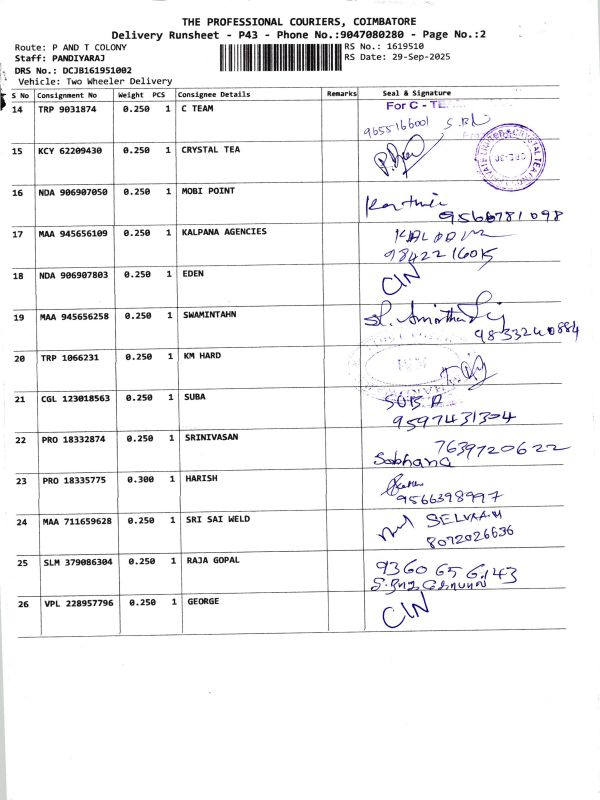 THE PROFESSIONAL COURIERS, COIMBATORE
Delivery Runsheet - P43 - Phone No.:9047080280 - Page No.:2
Route: P AND T COLONY
RS No.: 1619510
Staff: PANDIYARAJ
RS Date: 29-Sep-2025
DRS No.: DCJB161951002
Vehicle: Two Wheeler Delivery
S No Consignment No Weight PCS Consignee Details Remarks Seal & Signature
14 TRP 9031874 0.250 1 C TEAM For C - TE
9655166001
15 KCY 62209430 0.250 1 CRYSTAL TEA
16 NDA 906907050 0.250 1 MOBI POINT
9566781098
17 MAA 945656109 0.250 1 KALPANA AGENCIES
9842216015
18 NDA 906907803 0.250 1 EDEN CIN
19 MAA 945656258 0.250 1 SWAMINTAHN
9833240884
20 TRP 1066231 0.250 1 KM HARD
21 CGL 123018563 0.250 1 SUBA SUBA
9597431304
22 PRO 18332874 0.250 1 SRINIVASAN 7639720622
Sobhana
23 PRO 18335775 0.300 1 HARISH
9566398997
24 MAA 711659628 0.250 1 SRI SAI WELD SELVAM
8072026636
25 SLM 379086304 0.250 1 RAJA GOPAL 9360656143
26 VPL 228957796 0.250 1 GEORGE CIN